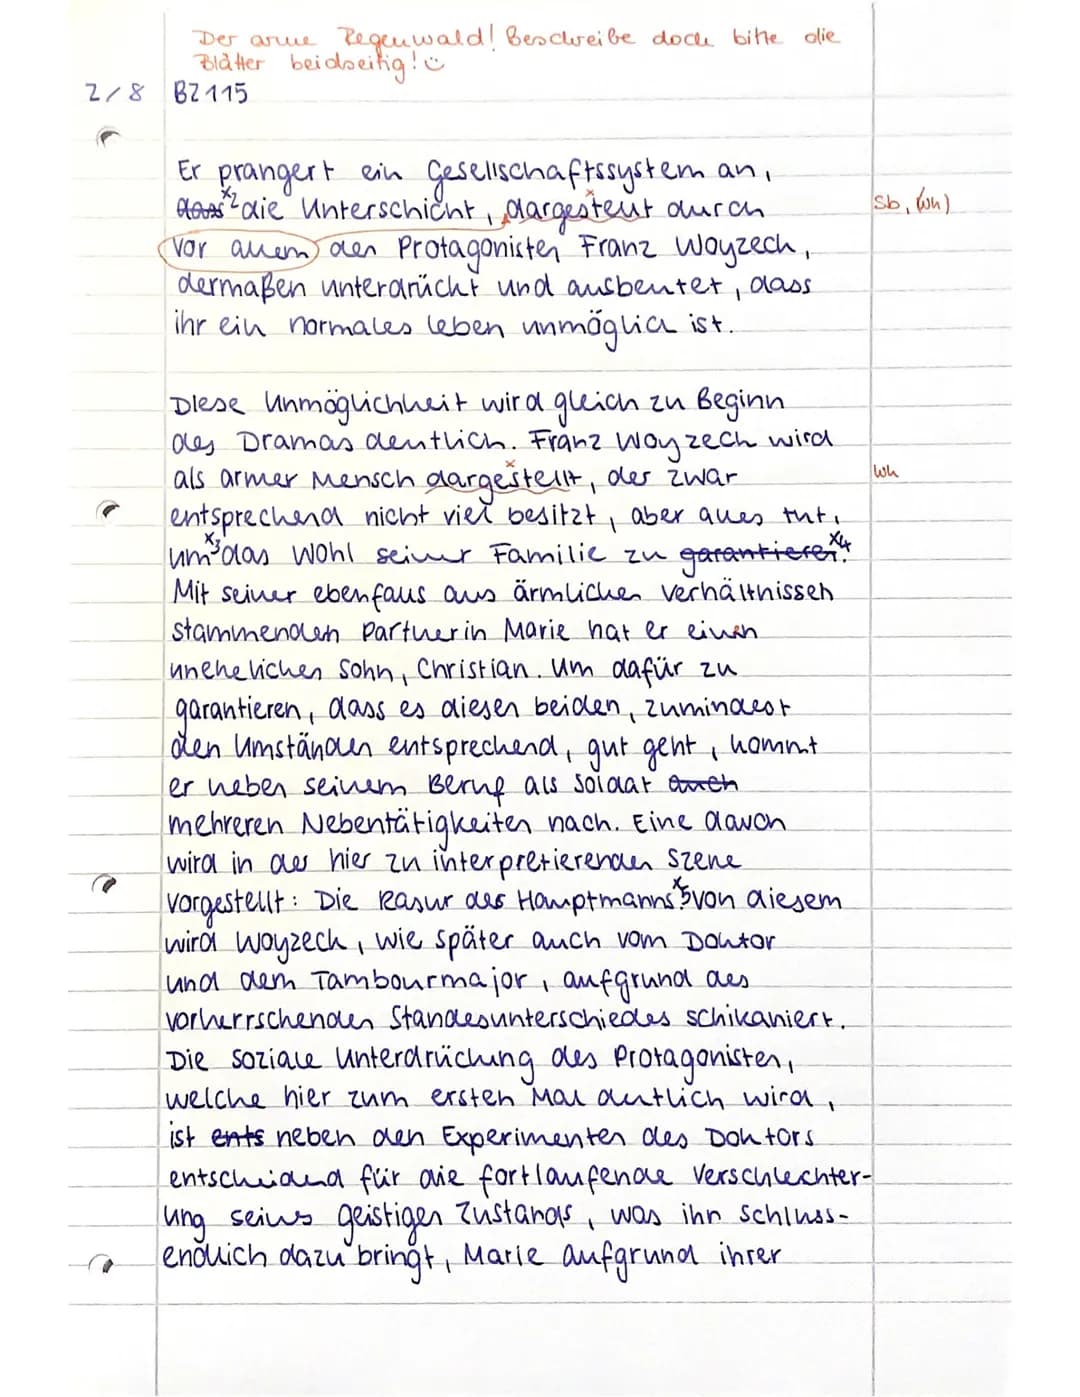 Der arme Regenwald! Beschreibe doch bitte die
Blätter beidseitig! ☺
2/8 BZ115
Er prangert ein Gesellschaftssystem an,
~~dass~~ x2 die Unterschicht, dargestellt durch
Sb, (Wh)
vor allem den Protagonisten Franz Woyzeck,
dermaßen unterdrückt und ausbeutet, dass
ihr ein normales Leben unmöglich ist.
Diese Unmöglichkeit wird gleich zu Beginn
des Dramas deutlich. Franz Woyzeck wird
als armer Mensch dargestellt, der zwar
Wh
entsprechend nicht viel besitzt, aber alles tut,
um x3 das Wohl seiner Familie zu ~~garantieren~~. x4
Mit seiner ebenfalls aus ärmlichen Verhältnissen
stammenden Partnerin Marie hat er einen
unehelichen Sohn, Christian. Um dafür zu
garantieren, dass es diesen beiden, zumindest
den Umständen entsprechend, gut geht, kommt
er neben seinem Beruf als Soldat ~~auch~~
mehreren Nebentätigkeiten nach. Eine davon
wird in der hier zu interpretierenden Szene
vorgestellt: Die Rasur des Hauptmanns x5 von diesem
wird Woyzeck, wie später auch vom Doktor
und dem Tambourmajor, aufgrund des
vorherrschenden Standesunterschiedes schikaniert.
Die soziale Unterdrückung des Protagonisten,
welche hier zum ersten Mal deutlich wird,
ist ~~ents~~ neben den Experimenten des Doktors
entscheidend für die fortlaufende Verschlechter-
ung seines geistigen Zustands, was ihn schluss-
endlich dazu bringt, Marie aufgrund ihrer